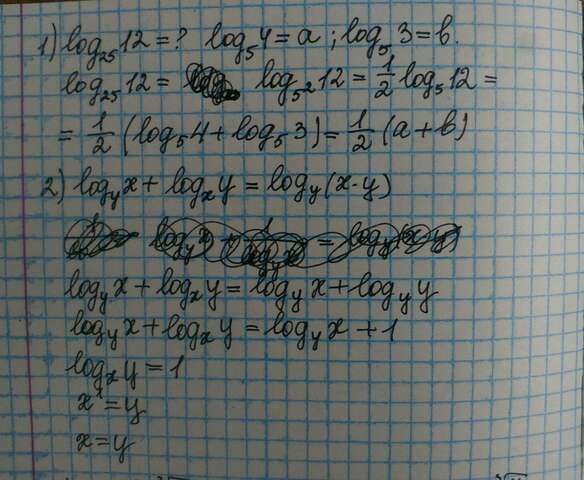 1) log₂₅12 = ? log₅4 = a ; log₅3 = b.
log₂₅12 = log₅²12 = 1/2 log₅12 =
= 1/2 (log₅4 + log₅3) = 1/2 (a + b)
2) logᵧx + logₓy = logᵧ(x·y)
logᵧx + logₓy = logᵧx + logᵧy
logᵧx + logₓy = logᵧx + 1
logₓy = 1
x¹ = y
x = y